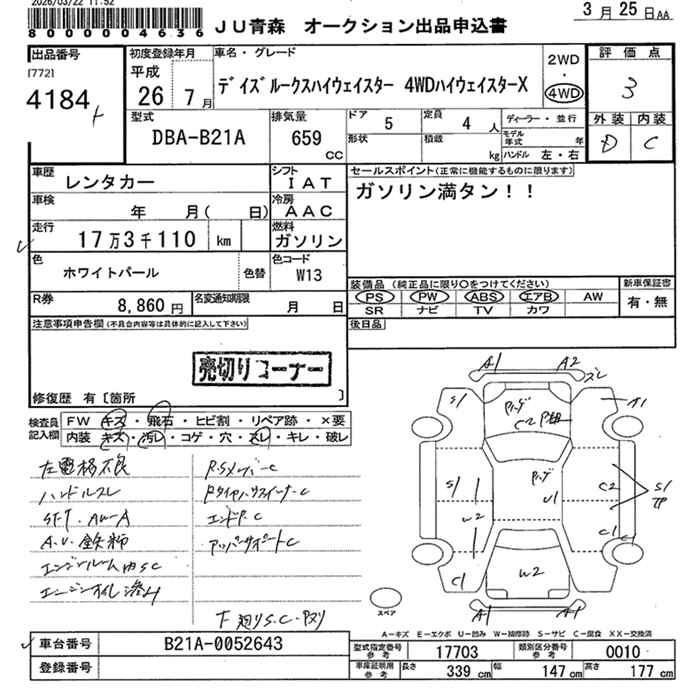 2026/03/22 11:52
800000004636
JU青森 オークション出品申込書
3月25日AA
出品番号
[772]
4184
初度登録年月
平成
26年7月
車名・グレード
ﾃﾞｲｽﾞﾙｰｸｽハイウェイスター 4WDハイウェイスターX
2WD
・
4WD
評価点
3
外装 内装
D C
型式
DBA-B21A
排気量
659
CC
ドア 5
形状
定員 4 人
積載 kg
ディーラー・並行
モデル年式 年
ハンドル 左・右
車歴
レンタカー
シフト
IAT
車検
年 月( 日)
冷房
AAC
走行
17万3千110 km
燃料
ガソリン
色
ホワイトパール
色替
色コード
W13
R券
8,860円
名変通知期限
月 日
セールスポイント(正常に機能するものに限ります)
ガソリン満タン!!
装備品 (純正品に限り○をつけてください)
PS PW ABS エアB AW
SR ナビ TV カワ
新車保証書
有・無
後日品
注意事項申告欄(不具合内容等は具体的に記入して下さい)
売切りコーナー
修復歴 有[箇所 ]
検査員
記入欄
FW キズ・飛石・ヒビ割・リペア跡・×要
内装 キズ・汚レ・コゲ・穴・スレ・キレ・破レ
ハンドルスレ
A.V.鉄粉
エンジンルーム内SC
エンジンオイル滲み
エンドP.C
アッパーサポートC
下廻りS.C
A1 A2
ズレ
S1
C2
S1
W2
U1
C2
C1
C1
W2
A1 A1
スペア
A-キズ E-エクボ U-凹み W-補修跡 S-サビ C-腐食 XX-交換済
車台番号
B21A-0052643
登録番号
型式指定番号
参考
17703
類別区分番号
参考
0010
車庫証明用
参考
長さ 339 cm
幅 147 cm
高さ 177 cm